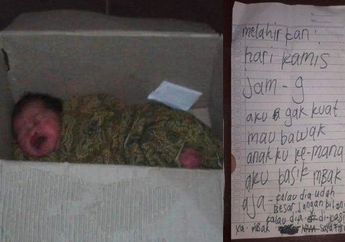 melahirkan:
hari kamis
jam - 9
aku gak kuat
mau bawak
anakku ke-mana
aku kasik mbak
aja - kalau dia udah
besar jangan bilang
kalau dia di-kasi
mbak